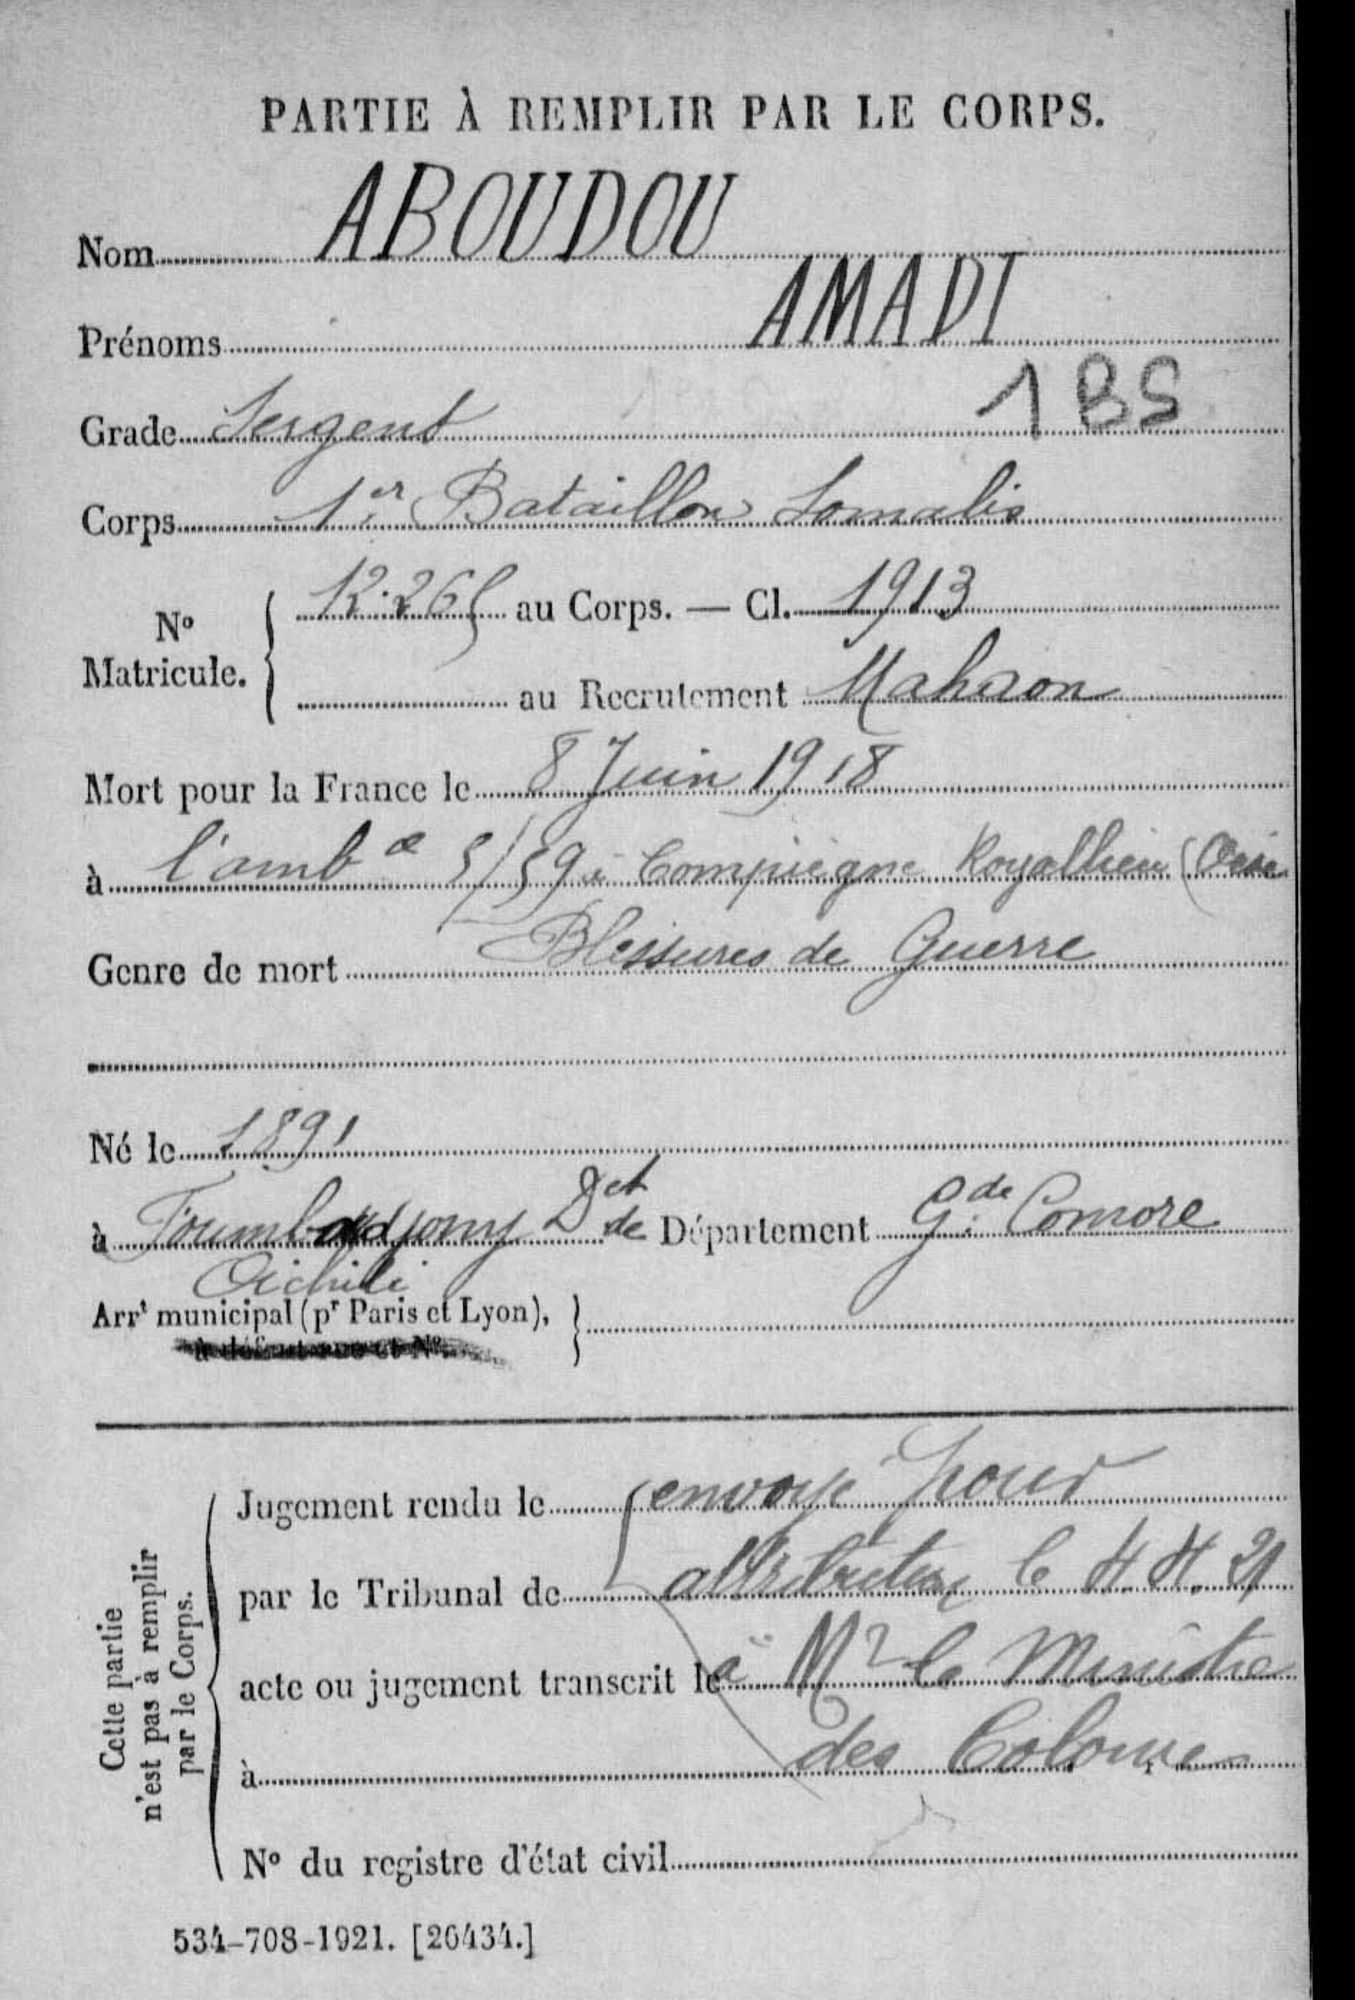 PARTIE À REMPLIR PAR LE CORPS.
Nom ABOUDOU
Prénoms AMADI
Grade Sergent 1 BS
Corps 1er Bataillon Somalis
No Matricule. 12.265 au Corps. — Cl. 1913
au Recrutement Mahoron
Mort pour la France le 8 Juin 1918
à l'amb ce 5/59 à Compiègne Royallieu (Oise
Genre de mort Blessures de Guerre
Né le 1891
à Dct de Département Gde Comore
Oichili
Arrt municipal (pr Paris et Lyon),
à défaut rue et No.
Cette partie n'est pas à remplir par le Corps.
Jugement rendu le envoyé pour
par le Tribunal de attribution le 4. 4. 21
acte ou jugement transcrit le à Mr le Ministre
à des Colonies
No du registre d'état civil
534-708-1921. [26434.]